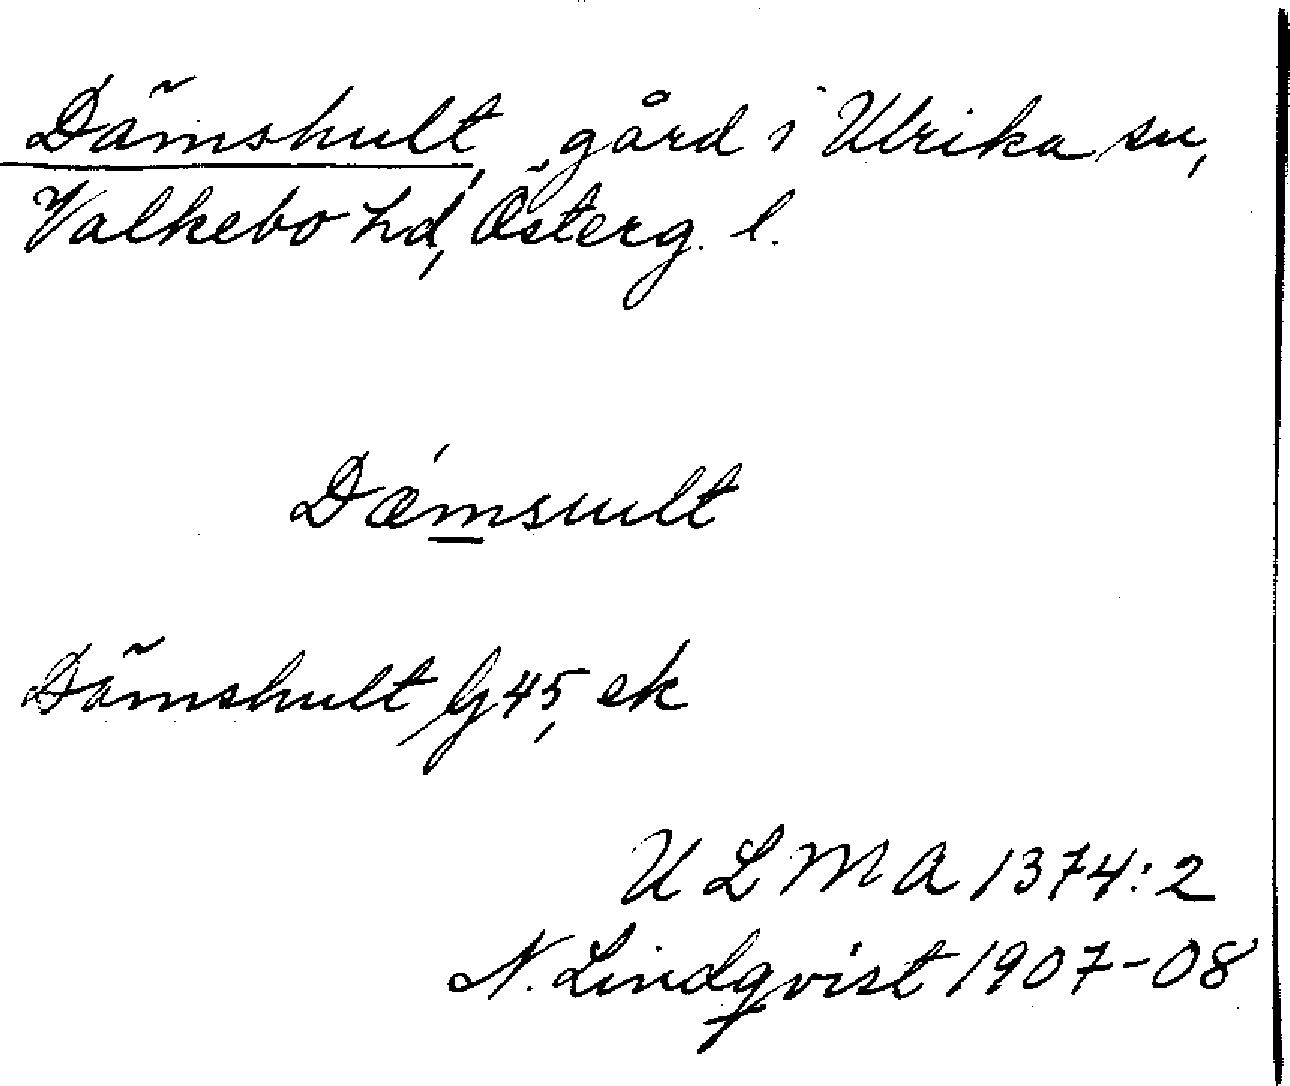 Dämshult, gård i Ulrika sn,
Valkebo hd, Österg. l.
Dǽmsuult
Dämshult G 45, ek
ULMA 1374:2
N. Lindqvist 1907-08